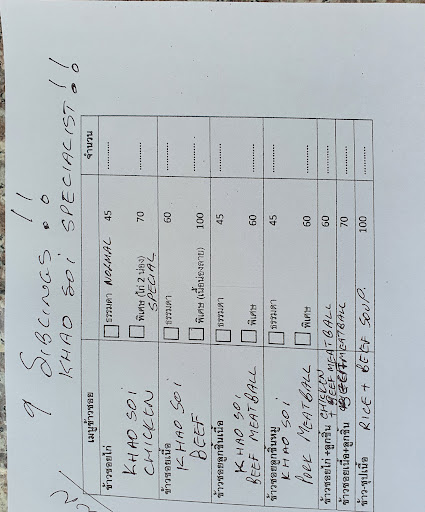 9 SIBLINGS !!
KHAO SOI SPECIALIST !!
เมนูข้าวซอย จำนวน
ข้าวซอยไก่ ☐ ธรรมดา NORMAL 45 ..........
KHAO SOI CHICKEN ☐ พิเศษ (ไก่ 2 น่อง) SPECIAL 70 ..........
ข้าวซอยเนื้อ ☐ ธรรมดา 60 ..........
KHAO SOI BEEF ☐ พิเศษ (เนื้อน่องลาย) 100 ..........
ข้าวซอยลูกชิ้นเนื้อ ☐ ธรรมดา 45 ..........
KHAO SOI BEEF MEATBALL ☐ พิเศษ 60 ..........
ข้าวซอยลูกชิ้นหมู ☐ ธรรมดา 45 ..........
KHAO SOI PORK MEATBALL ☐ พิเศษ 60 ..........
ข้าวซอยไก่+ลูกชิ้น CHICKEN + BEEF MEATBALL 60 ..........
ข้าวซอยเนื้อ+ลูกชิ้น BEEF MEATBALL 70 ..........
ข้าว-ซุปเนื้อ RICE + BEEF SOUP. 100 ..........